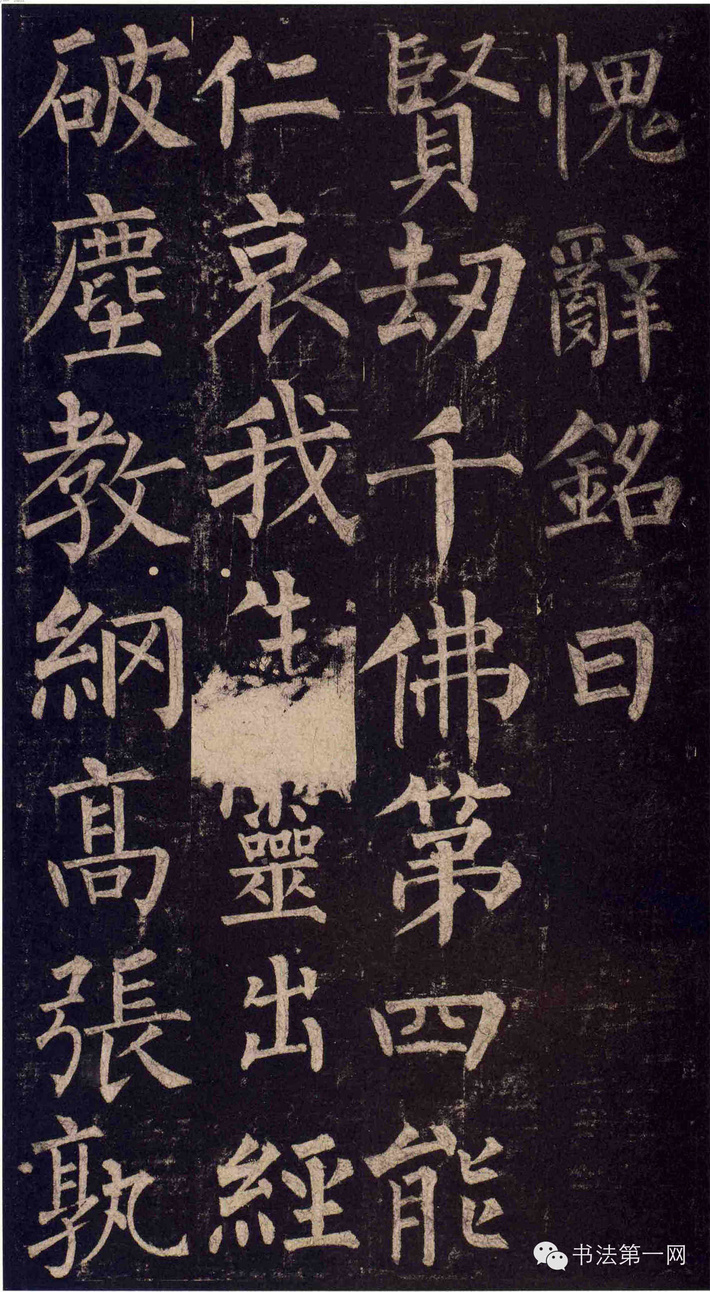 愧辭銘曰
賢劫千佛第四能
仁哀我生靈出經
破塵教網高張孰
书法第一网